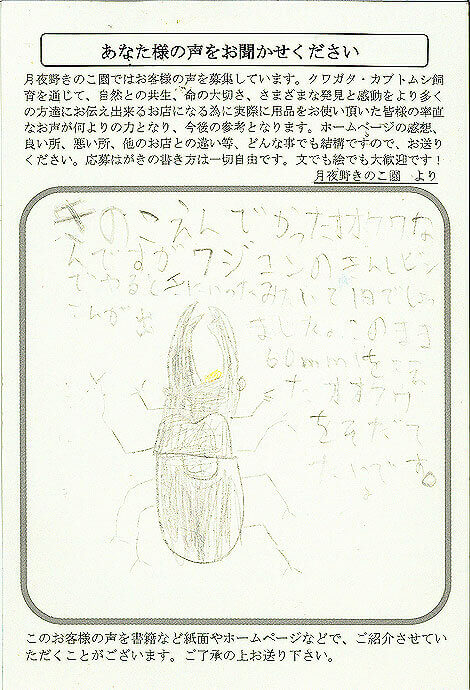 あなた様の声をお聞かせください
月夜野きのこ園ではお客様の声を募集しています。クワガタ・カブトムシ飼
育を通じて、自然との共生、命の大切さ、さまざまな発見と感動をより多く
の方達にお伝え出来るお店になる為に実際に用品をお使い頂いた皆様の率直
なお声が何よりの力となり、今後の参考となります。ホームページの感想、
良い所、悪い所、他のお店との違い等、どんな事でも結構ですので、お送り
ください。応募はがきの書き方は一切自由です。文でも絵でも大歓迎です！
月夜野きのこ園　より
きのこえんでかったオオクワな
んですが フジコンの きんしビン
でやると 1日でしっ
ました。このまま
60mmを
たオオクワ
をそだて
たいです。
このお客様の声を書籍など紙面やホームページなどで、ご紹介させてい
ただくことがございます。ご了承の上お送り下さい。